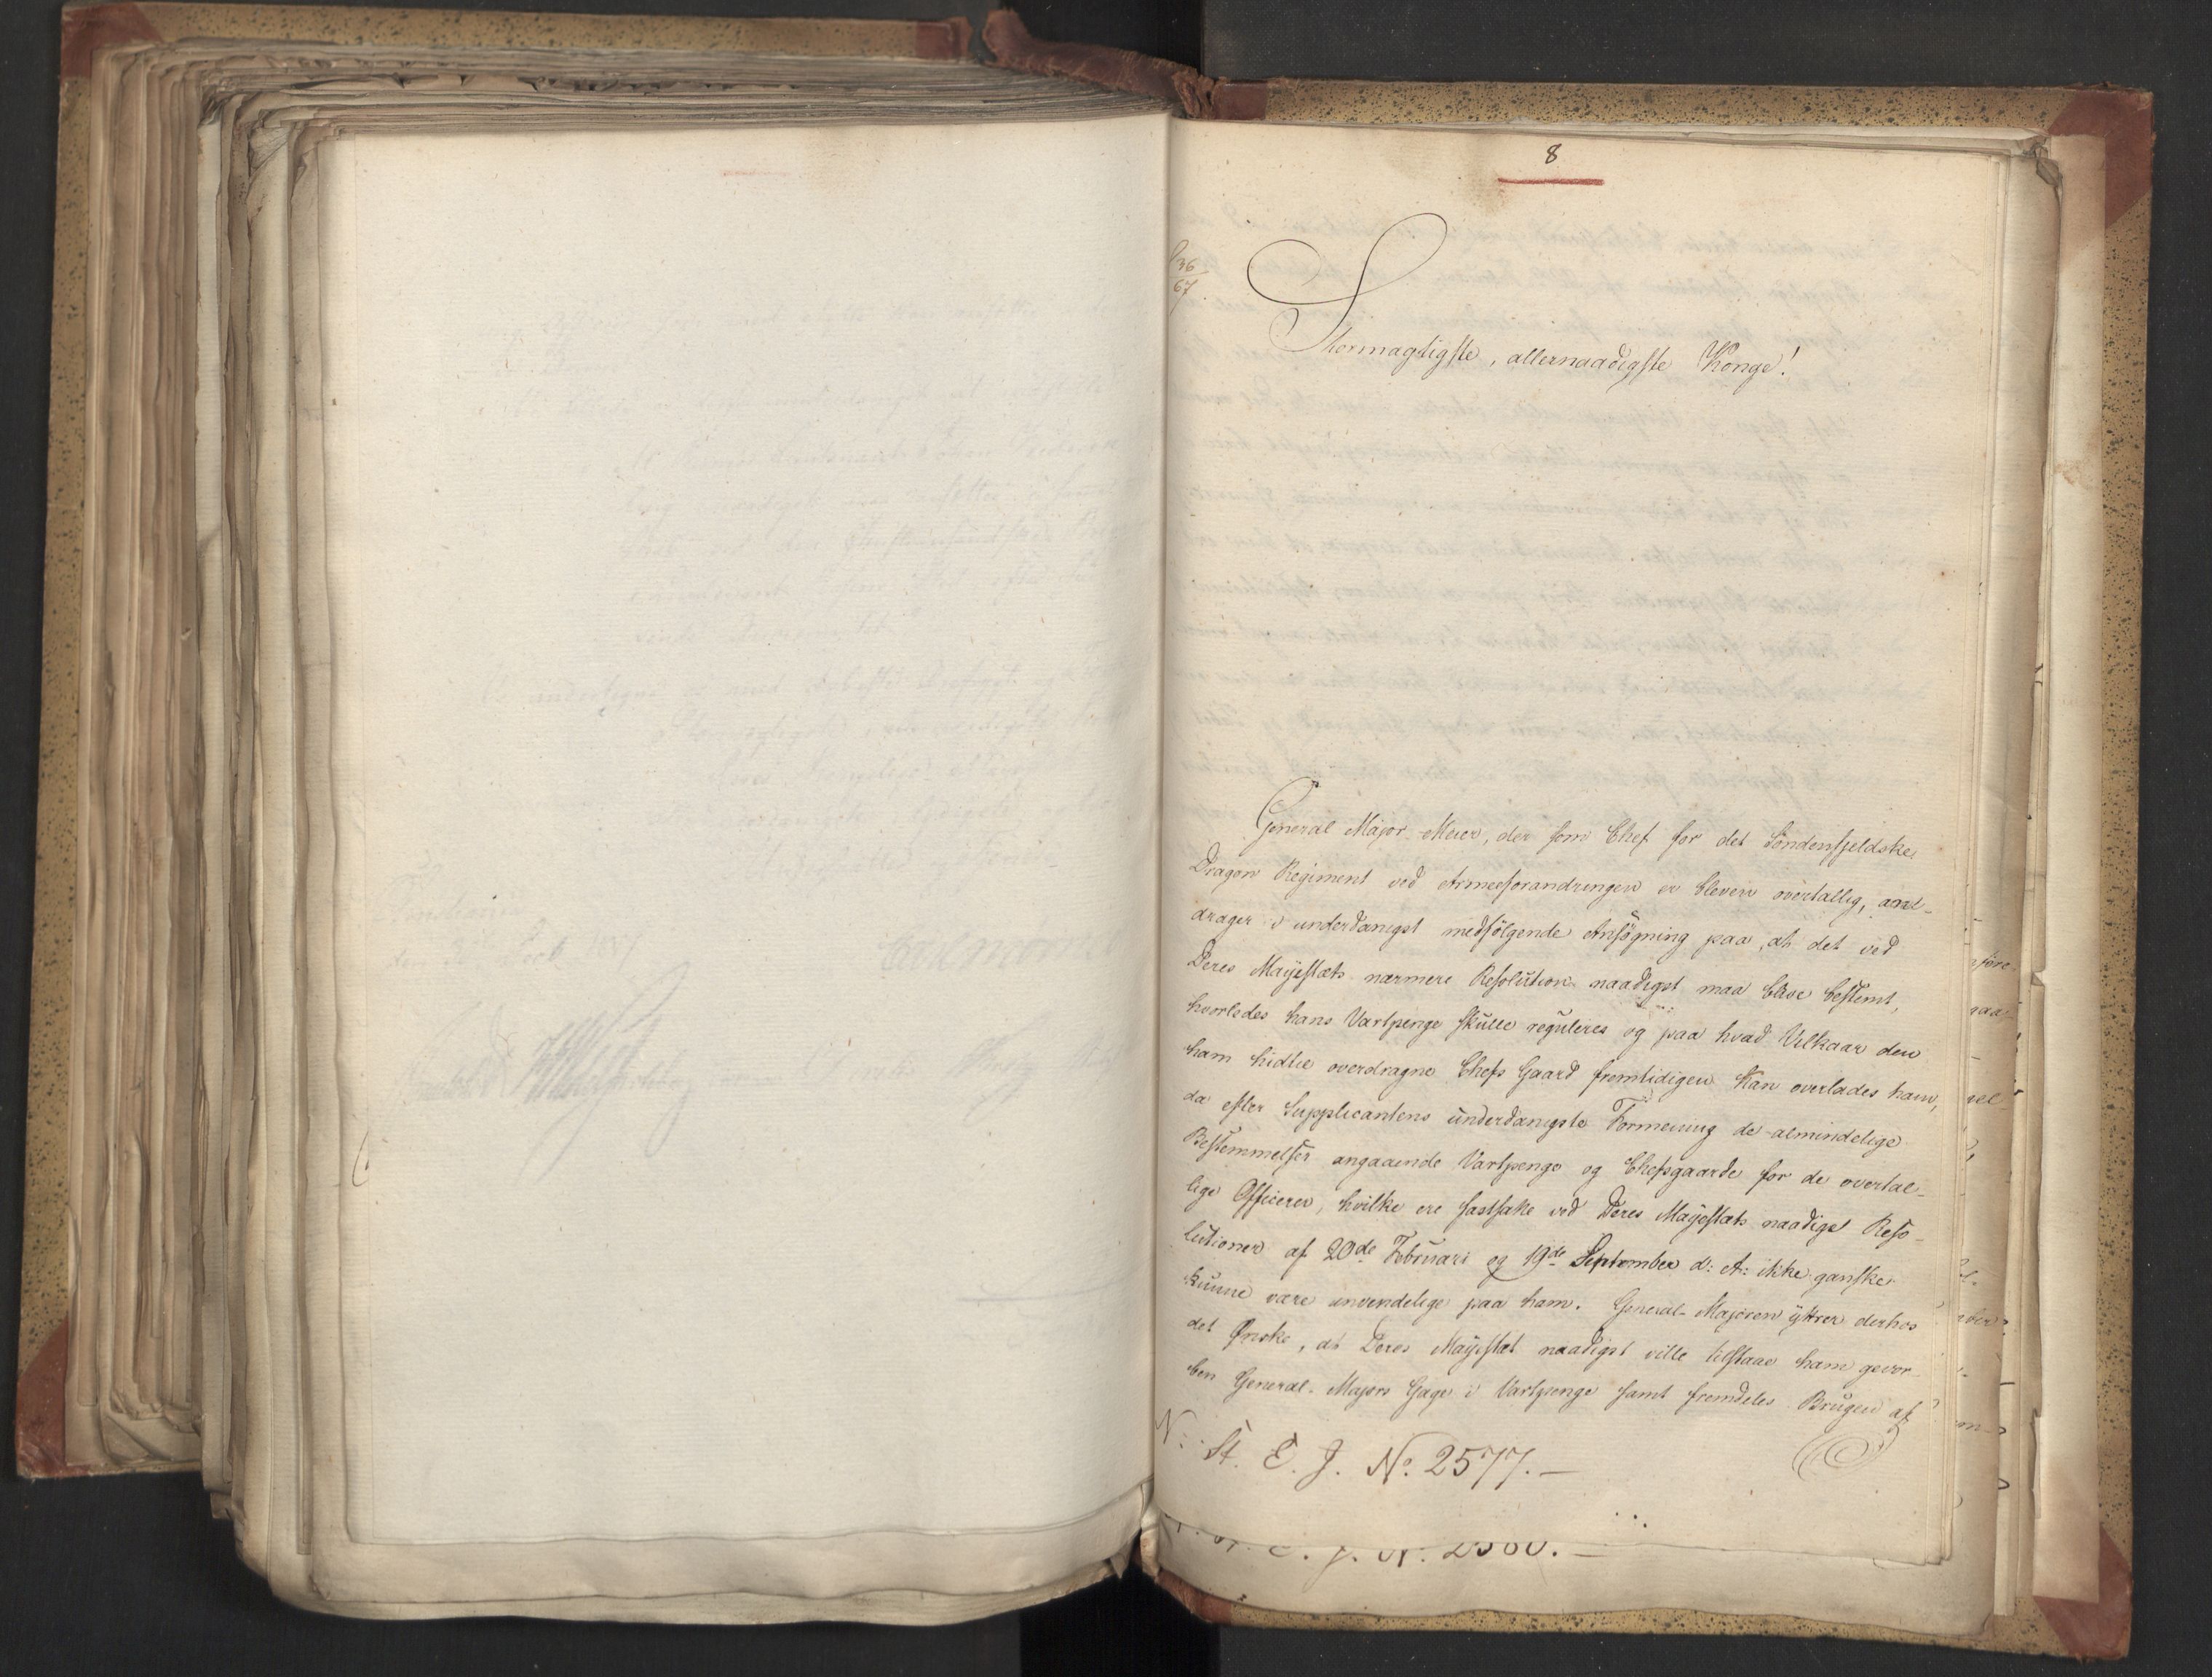 8
36
67
Stormægtigste, allernaadigste Konge!
General Major Meier, der som Chef for det Söndenfjeldske
Dragon Regiment ved Armeeforandringen er bleven overtallig, an-
drager i underdanigst medfölgende Ansögning paa, at det ved
Deres Majestæts nærmere Resolution naadigst maa blive bestemt,
hvorledes hans Vartpenge skulle reguleres og paa hvad Vilkaar den
ham hidtil overdragne Chefs Gaard fremtidigen kan overlades ham,
da efter Supplicantens underdanigste Formening de almindelige
Bestemmelser angaaende Vartpenge og Chefsgaarde for de overtal-
lige Officerer, hvilke ere fastsatte ved Deres Majestæts naadigst Reso-
lutioner af 20de Februari og 19de September d: A: ikke ganske
kunne være anvendelige paa ham. General-Majoren yttrer derhos
det Ønske, at Deres Majestæt naadigst ville tilstaae ham gevor-
ben General-Majors Gage i Vartpenge samt fremdeles Brugen af
N: St. E. J. No. 2577.-